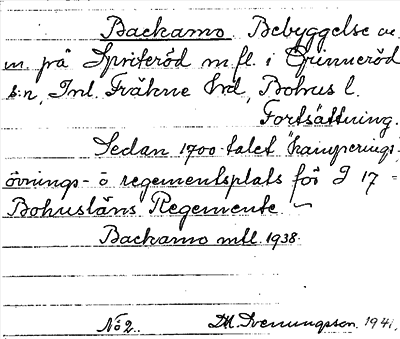 Backamo Bebyggelse o.
m. på Spriteröd m.fl. i Grinneröd
s:n, Inl. Fräkne hd, Bohus l.
Fortsättning.
Sedan 1700-talet "kamperings-,
övnings- o regementsplats för I 17 =
Bohusläns Regemente
Backamo mtl. 1938.
No 2. D.H. Svenungsson. 1941.